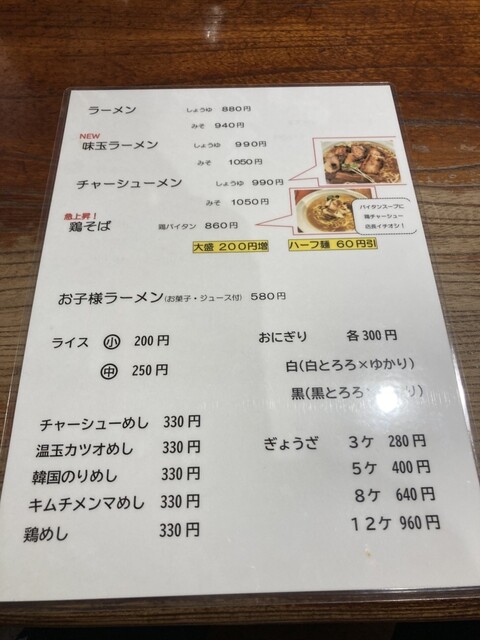 ラーメン しょうゆ 880円
みそ 940円
NEW
味玉ラーメン しょうゆ 990円
みそ 1050円
チャーシューメン しょうゆ 990円
みそ 1050円
急上昇！
鶏そば 鶏パイタン 860円
パイタンスープに
鶏チャーシュー
店長イチオシ！
大盛 200円増 ハーフ麺 60円引
お子様ラーメン(お菓子・ジュース付) 580円
ライス 小 200円
中 250円
おにぎり 各300円
白(白とろろ×ゆかり)
黒(黒とろろ り)
チャーシューめし 330円
温玉カツオめし 330円
韓国のりめし 330円
キムチメンマめし 330円
鶏めし 330円
ぎょうざ 3ケ 280円
5ケ 400円
8ケ 640円
12ケ 960円